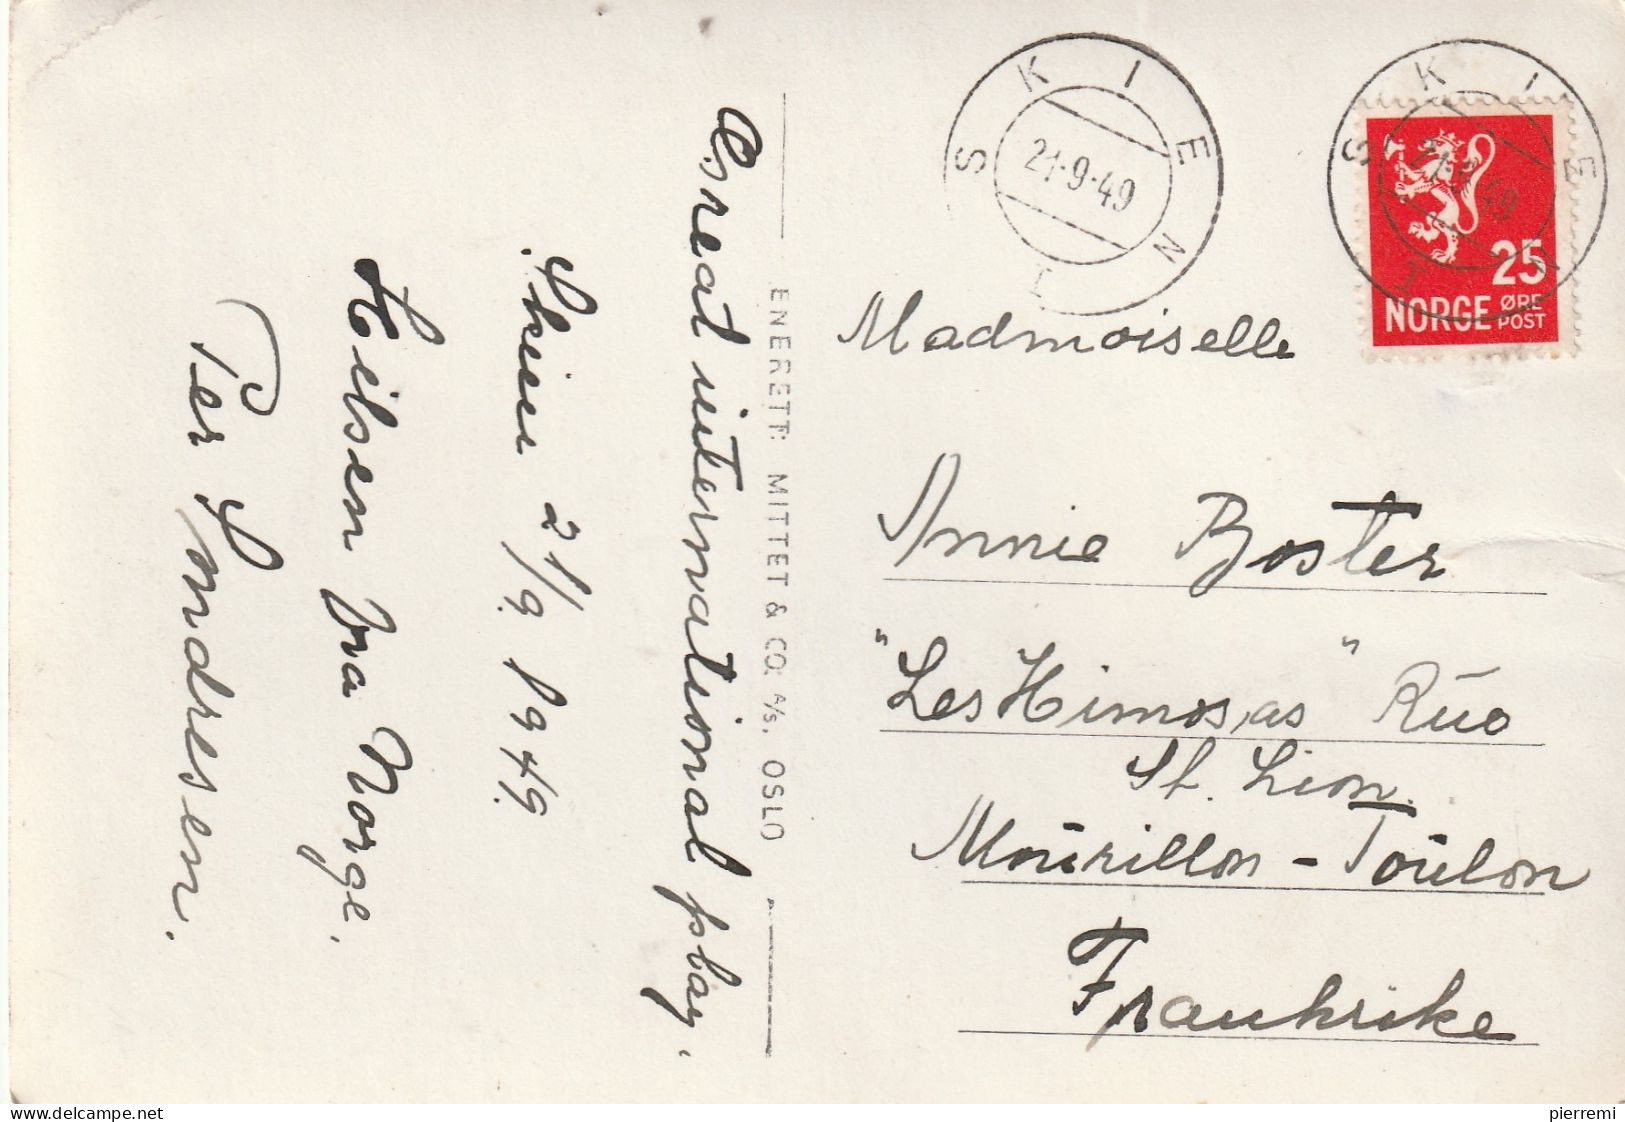 Asread international play.
Skien 21/9 1949.
Hilsen fra Norge.
Per Smdresen.
ENERETT: MITTET & CO: A/S. OSLO
SKIEN
21-9-49
SKIEN
21-9-49
25
NORGE ØRE POST
Madmoiselle
Annie Boster
"Les Himosas" Rüo
St. Lion.
Moürillon - Toülon
Frankrike
delcampe.net
pierremi